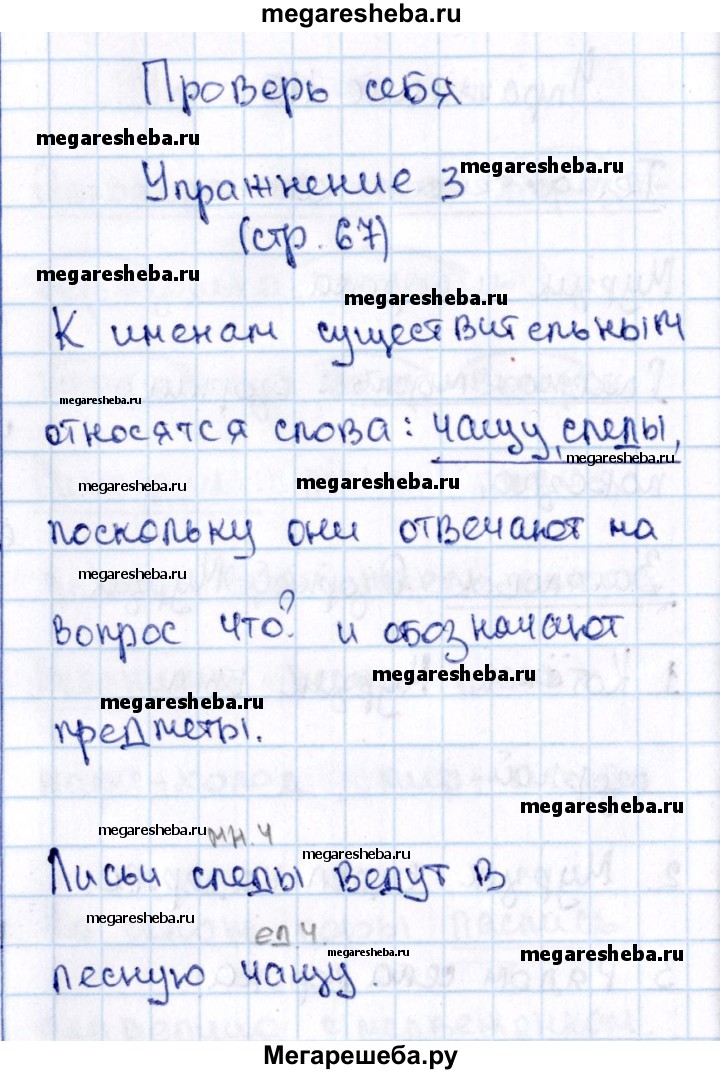 megaresheba.ru
Проверь себя
megaresheba.ru
Упражнение 3
megaresheba.ru
(стр. 67)
megaresheba.ru
megaresheba.ru
К именам существительным
megaresheba.ru
относятся слова: чащу, следы,
megaresheba.ru
megaresheba.ru
megaresheba.ru
поскольку они отвечают на
megaresheba.ru
вопрос что? и обозначают
megaresheba.ru
megaresheba.ru
предметы.
megaresheba.ru
megaresheba.ru
мн.ч
megaresheba.ru
Лисьи следы ведут в
megaresheba.ru
ед.ч.
megaresheba.ru
megaresheba.ru
лесную чащу.
megaresheba.ru
Мегарешеба.ру